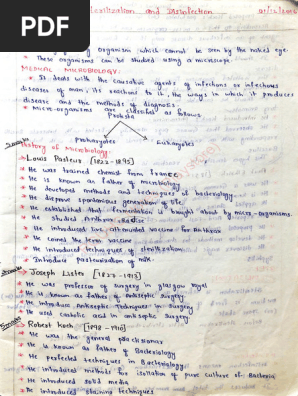 PDF
Sterilization and Disinfection
organism which cannot be seen by the naked eye.
* These organisms can be studied using a microscope.
MEDICAL MICROBIOLOGY:
* It deals with the causative agents of infectious
diseases of man, its reactions to it, the ways in which it produces
disease and the methods of diagnosis.
* Micro-organisms are classified as follows
Protista
Prokaryotes Eukaryotes
History of Microbiology:
Louis Pasteur [1822-1895]
* He was trained chemist from France
* He is known as father of microbiology
* He developed methods and techniques of bacteriology.
* He disprove spontaneous generation of life.
* He established that fermentation is brought about by micro-organisms.
* He studied Anthrax
* He introduced live attenuated vaccine for
* He coined the term vaccine
* He introduced techniques of sterilization
* Introduce pasteurization of milk.
Joseph Lister [1827-1912]
* He was professor of surgery in glasgow
* He is known as father of Antiseptic surgery
* He introduce Antiseptic techniques in surgery
* He used carbolic acid in antiseptic surgery
Robert Koch
* He was the general practisonar
* He is known as father of Bacteriology
* He perfected techniques in Bacteriology
* He introduced methods for isolation of pure culture of Bacteria
* He introduced solid media
* He introduced staining techniques